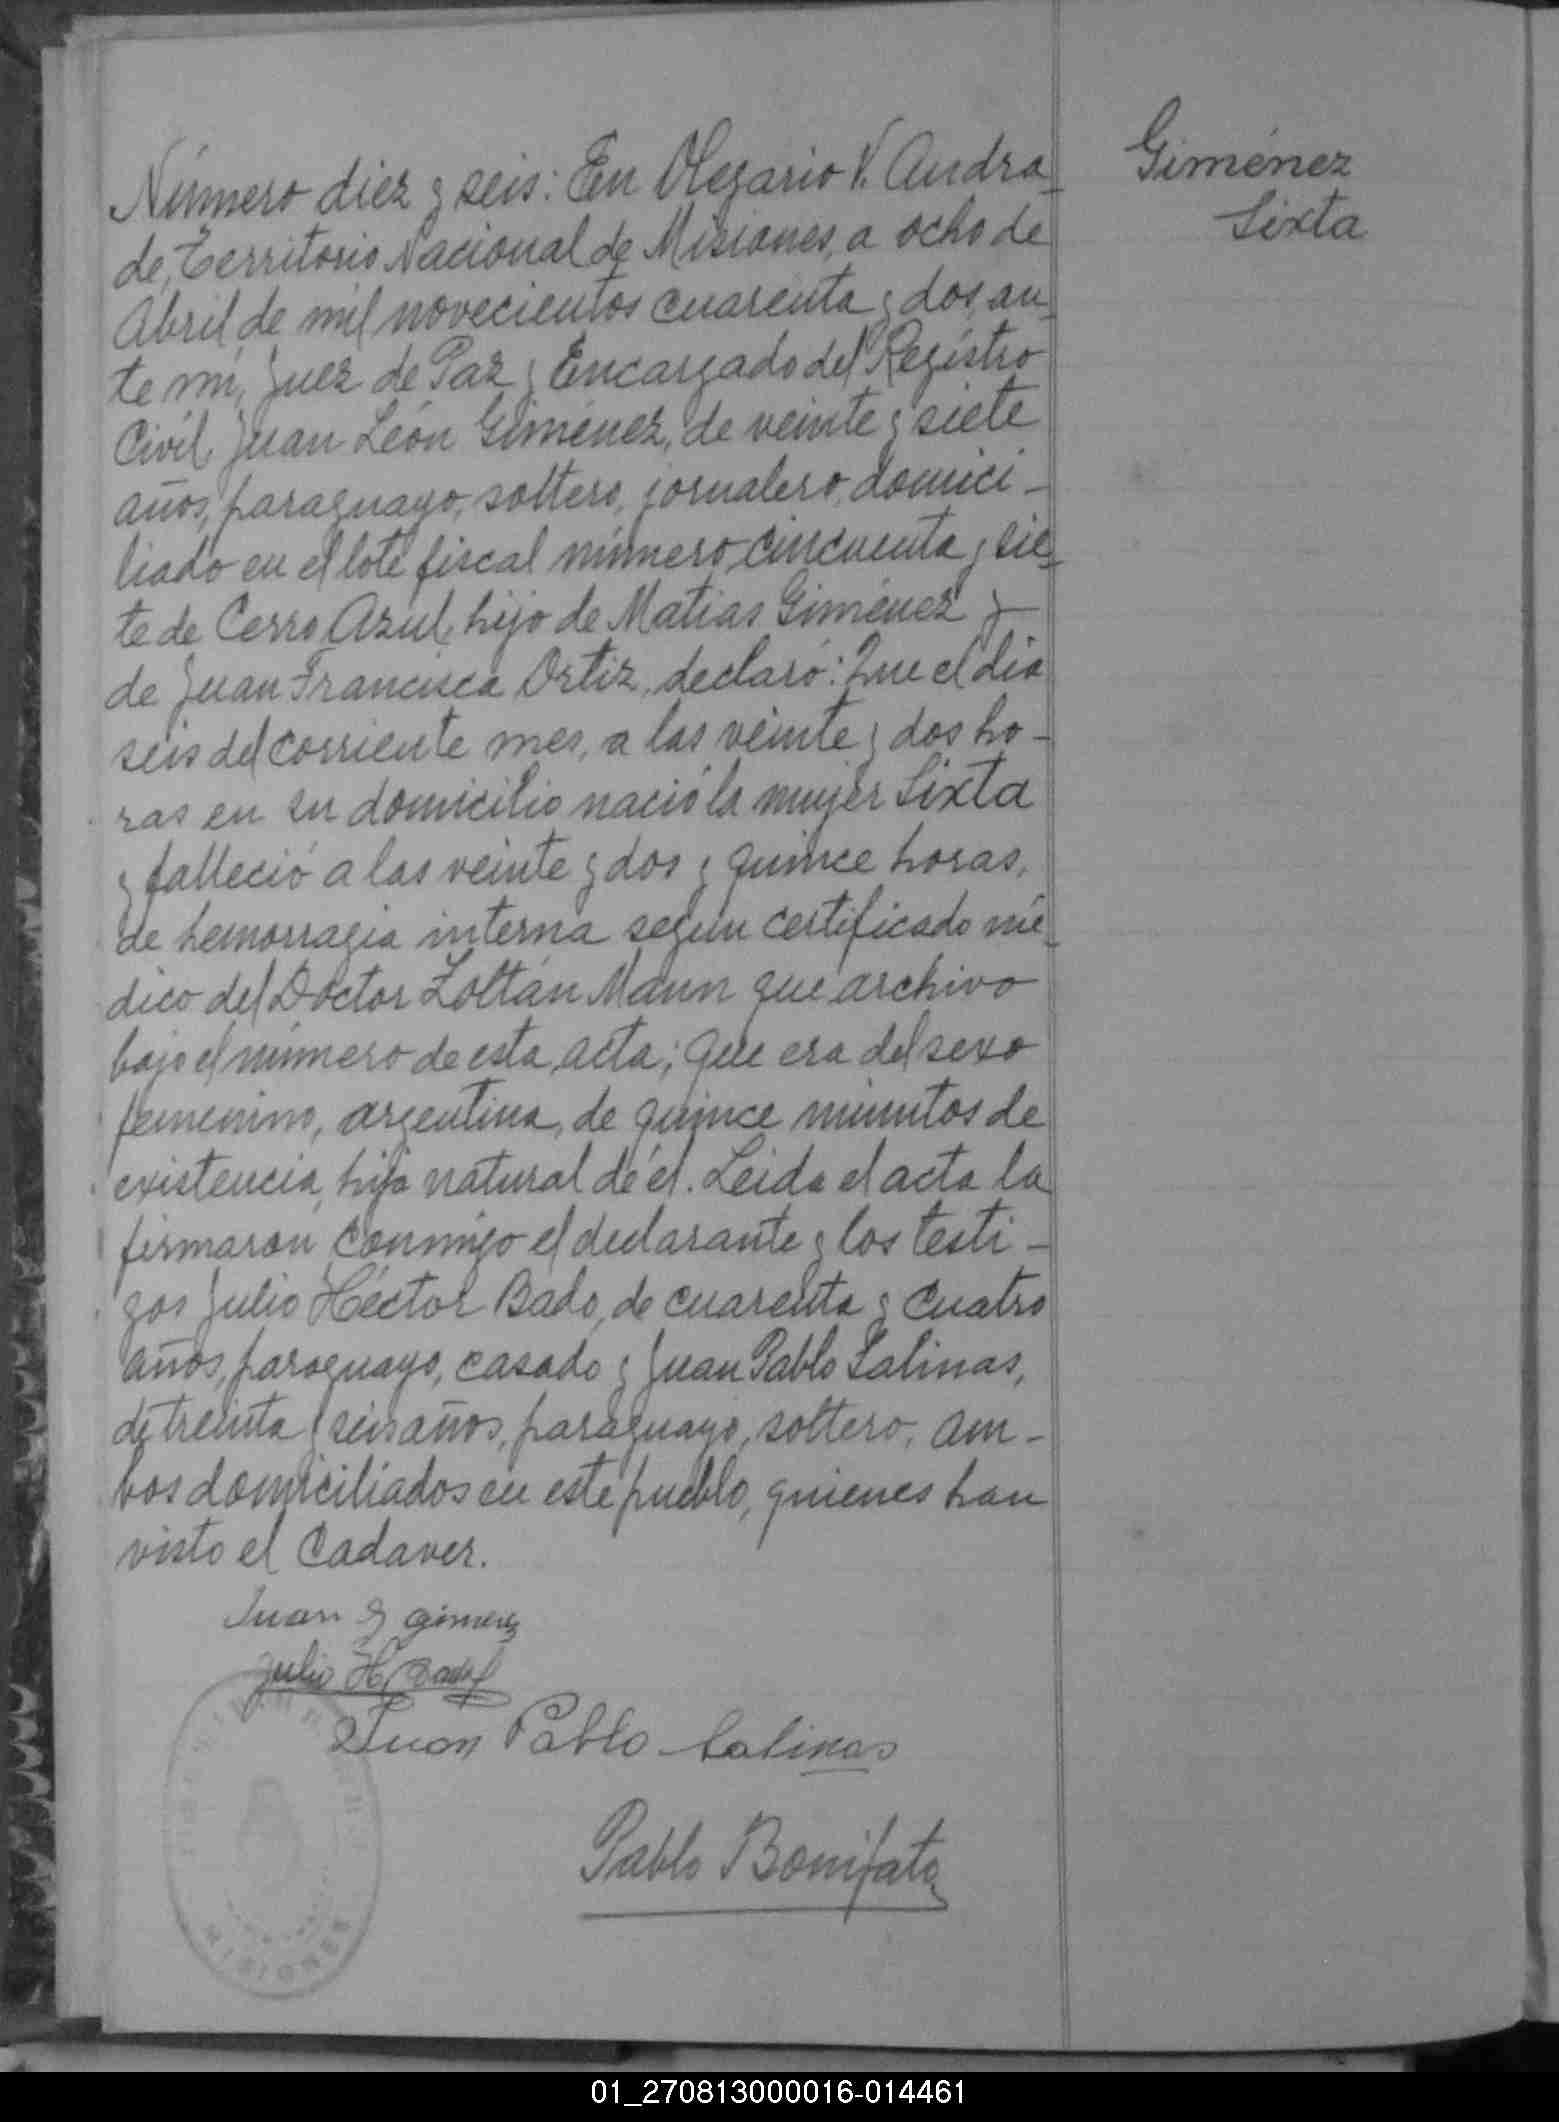 Número diez y seis: En Olegario V. Andra-
de, Territorio Nacional de Misiones, a ocho de
Abril de mil novecientos cuarenta y dos, an-
te mí, Juez de Paz y Encargado del Registro
Civil, Juan León Giménez, de veinte y siete
años, paraguayo, soltero, jornalero, domici-
liado en el lote fiscal número cincuenta y sie-
te de Cerro Azul, hijo de Matías Giménez y
de Juan Francisca Ortiz, declaró: Que el día
seis del corriente mes, a las veinte y dos ho-
ras en su domicilio nació la mujer Sixta
y falleció a las veinte y dos y quince horas,
de hemorragia interna según certificado mé-
dico del Doctor Zoltán Mann que archivo
bajo el número de esta acta; que era del sexo
femenino, argentina, de quince minutos de
existencia, hija natural de él. Leida el acta la
firmaron conmigo el declarante y los testi-
gos Julio Héctor Bado, de cuarenta y cuatro
años, paraguayo, casado y Juan Pablo Salinas,
de treinta y seis años, paraguayo, soltero, am-
bos domiciliados en este pueblo, quienes han
visto el cadaver.
Juan L gimenez
Julio H. Bado
Juan Pablo Salinas
Pablo Bonifato
MISIONES
Giménez
Sixta
01_270813000016-014461